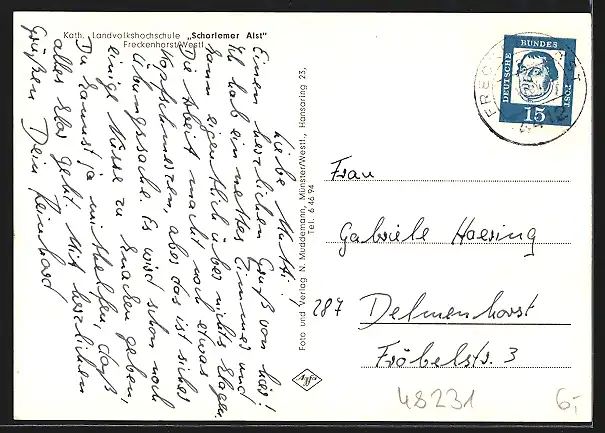 Kath. Landvolkshochschule „Schorlemer Alst"
Freckenhorst/Westf.
Liebe Mutti!
Einen herzlichen Gruß von hier!
Ich hab ein nettes Zimmer und
kann eigentlich über nichts klagen.
Die Arbeit macht noch etwas
Kopfschmerzen, aber das ist sicher
Übungssache. Es wird schon noch
einige Nüsse zu knacken geben,
Du kannst ja mithelfen, daß
alles klar geht. Mit herzlichen
Grüßen Dein Reinhard
Foto und Verlag N. Muddemann, Münster/Westf., Hansaring 23,
Tel. 6 46 94
Agfa
DEUTSCHE
BUNDES
POST
15
Frau
Gabriele Haering
287 Delmenhorst
Fröbelstr. 3
48231
6,-